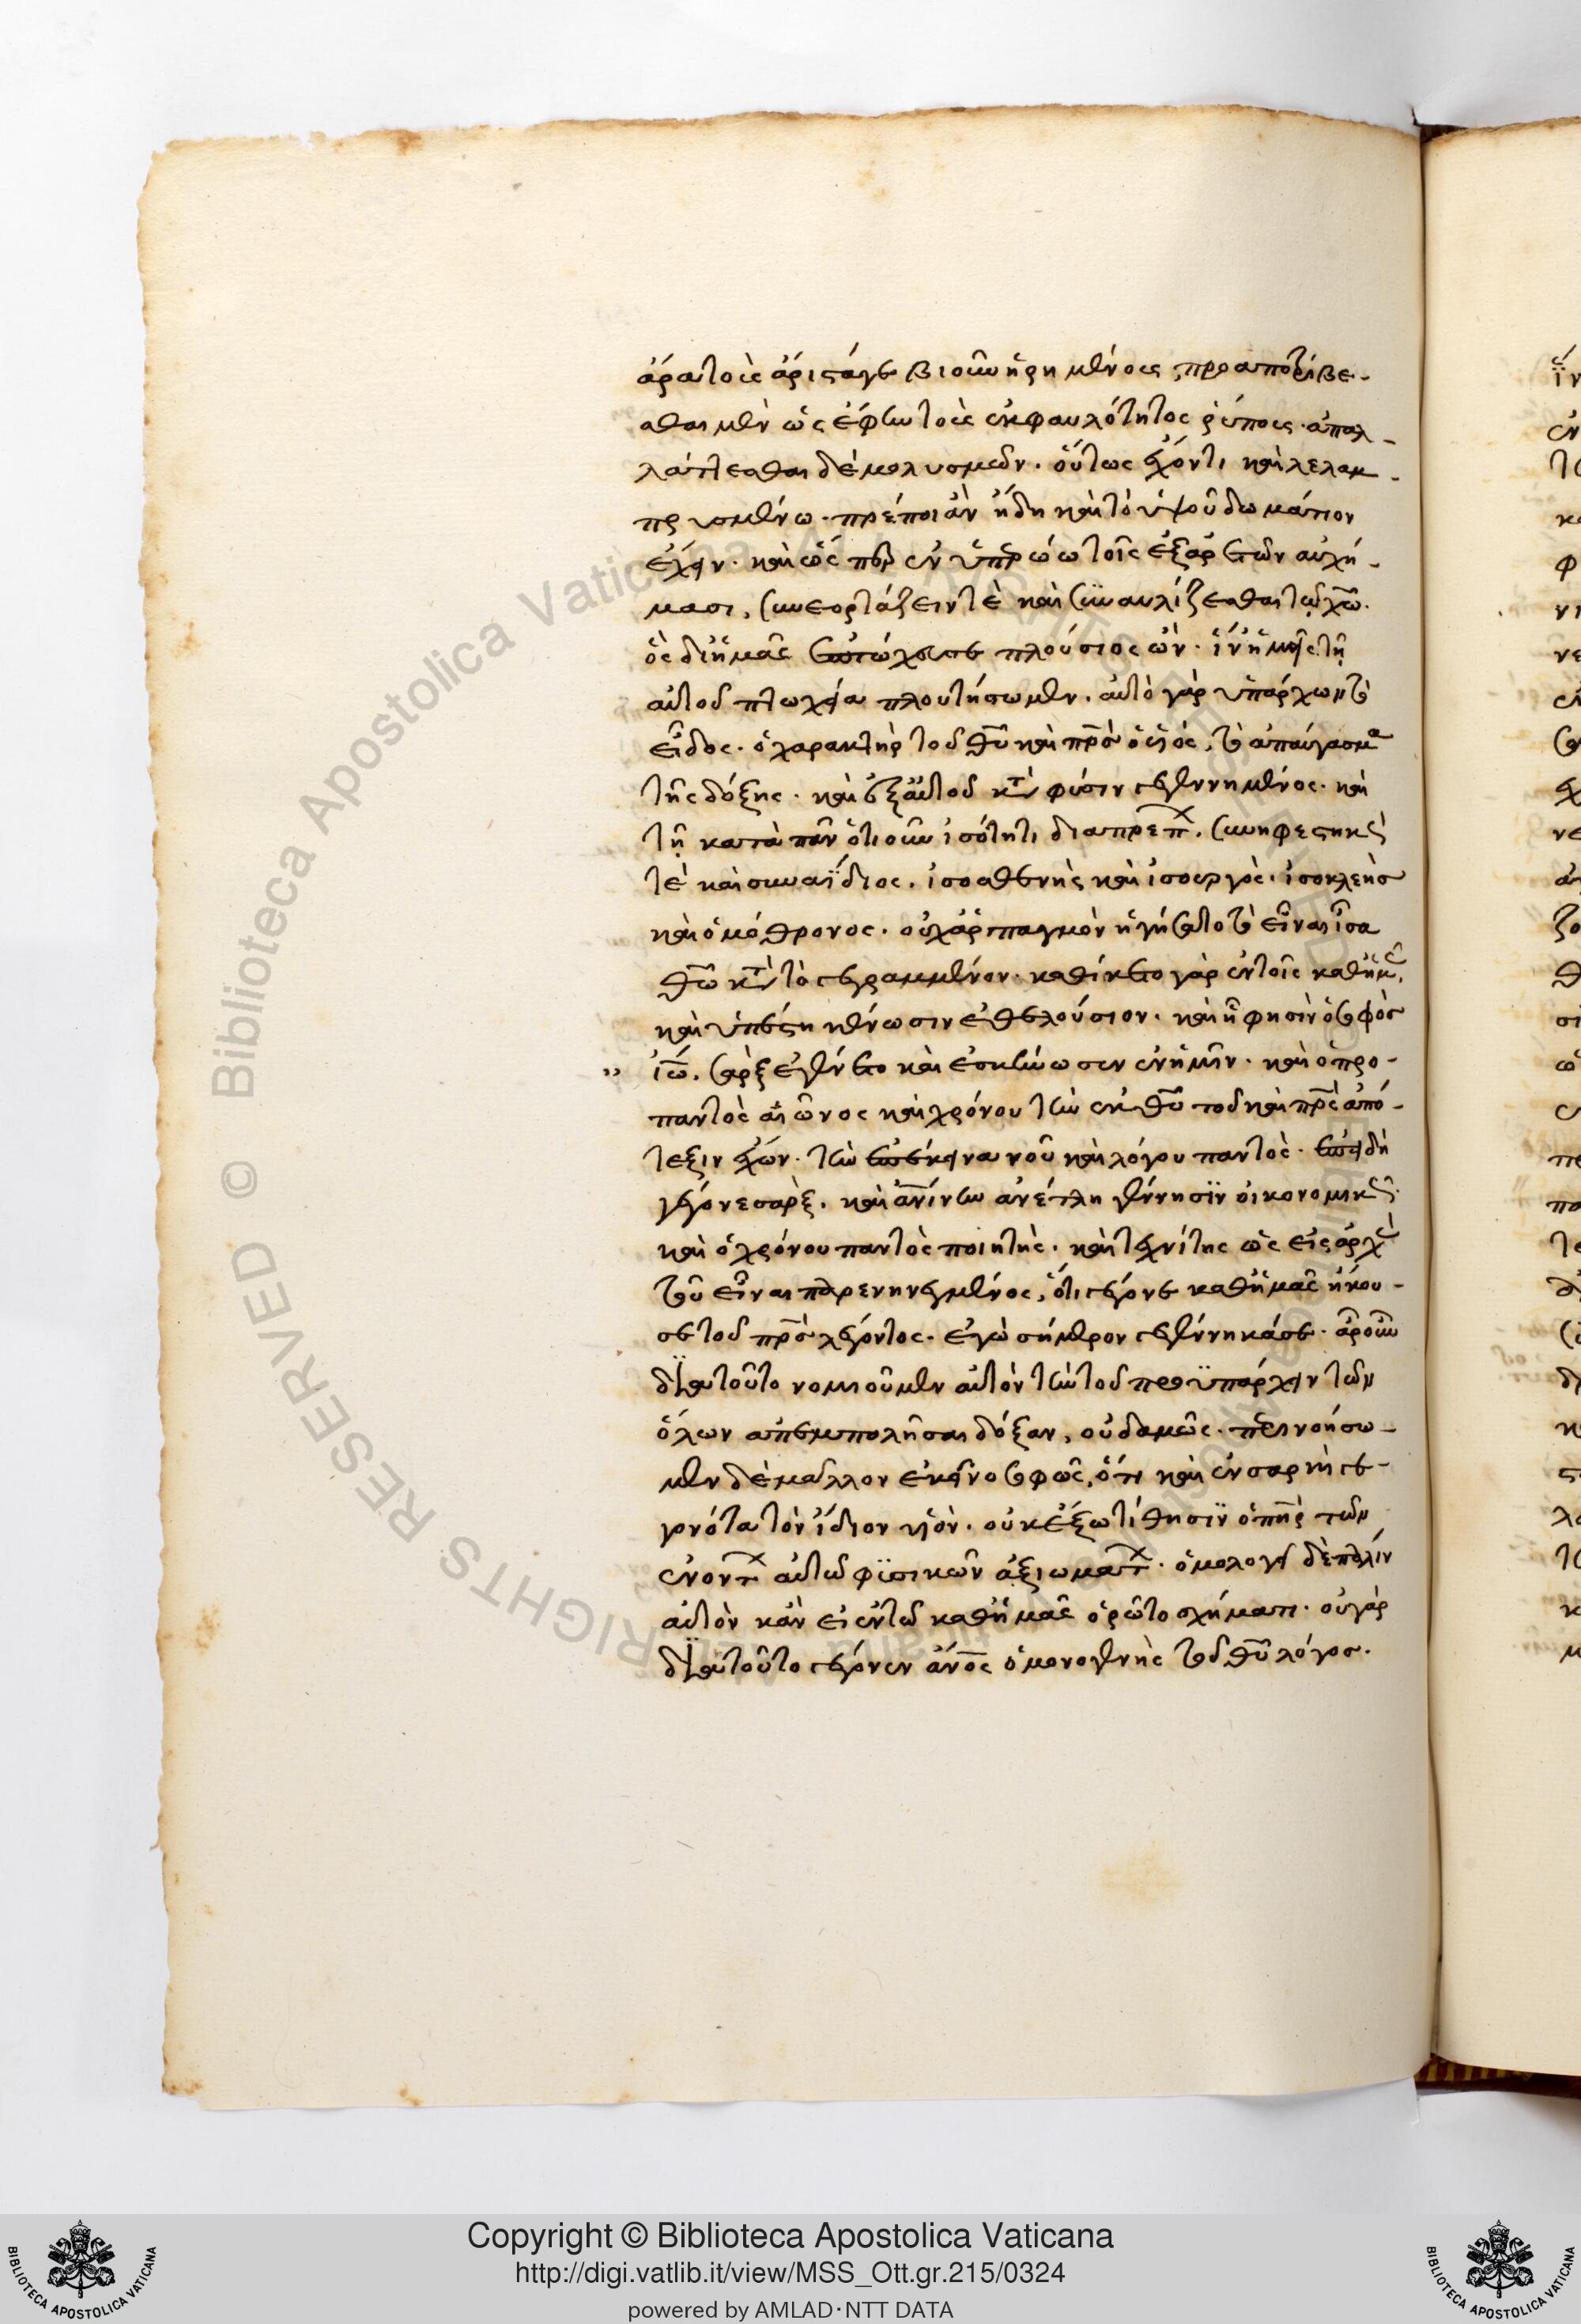 ἄρα τοῖς ἄριστά γε βιοῦν ᾑρημένοις, προαποτρίβε-
σθαι μὲν ὡς ἔφην τοὺς ἐκ φαυλότητος ῥύπους. ἀπαλ-
λάττεσθαι δὲ μολυσμῶν. οὕτως ἔχοντι καὶ λελαμ-
πρυσμένω. πρέποι ἂν ἤδη καὶ τὸ ὑψοῦ δωμάτιον
ἔχειν. καὶ ὥς περ ἐν ὑπερώω τοῖς ἐξ ἀρετῶν αὐχή-
μασι, συνεορτάζειν τὲ καὶ συναυλίζεσθαι τῷ χῶ.
ὃς δι' ἡμᾶς ἐπτώχευσε πλούσιος ὤν. ἵν' ἡμεῖς τῇ
αὐτοῦ πτωχεία πλουτήσωμεν. αὐτὸ γὰρ ὑπάρχων τὸ
εἶδος. ὁ χαρακτὴρ τοῦ θυ καὶ πρς ὁ υἱός, τὸ ἀπαύγασμα
τῆς δόξης. καὶ ἐξ αὐτοῦ κατὰ φύσιν γεγεννημένος. καὶ
τῇ κατὰ πᾶν ὁτιοῦν ἰσότητι διαπρέπων. συνυφεστηκώς
τὲ καὶ συναΐδιος. ἰσοσθενὴς καὶ ἰσουργὸς. ἰσοκλεὴς
καὶ ὁμόθρονος. οὐχ ἁρπαγμὸν ἡγήσατο τὸ εἶναι ἶσα
θῶ κατὰ τὸ γεγραμμένον. καθίκετο γὰρ ἐν τοῖς καθ' ἡμᾶς,
καὶ ὑπέστη κένωσιν ἐθελούσιον. καὶ ᾗ φησὶν ὁ σοφὸς
" ἰω. σὰρξ ἐγένετο καὶ ἐσκήνωσεν ἐν ἡμῖν. καὶ ὁ προ-
παντὸς αἰῶνος καὶ χρόνου τὴν ἐκ θυ τοῦ καὶ πρς ἀπό-
τεξιν ἔχων. τὴν ἐπέκεινα νοῦ καὶ λόγου παντὸς. ἐπειδὴ
γέγονε σὰρξ. καὶ ἀνίνην ἀνέτλη γέννησιν οἰκονομικῶς.
καὶ ὁ χρόνου παντὸς ποιητὴς. καὶ τεχνίτης ὡς εἰς ἀρχὴν
τοῦ εἶναι παρενηνεγμένος, ὅτι γέγονε καθ' ἡμᾶς ἤκου-
σε τοῦ πρς λέγοντος. ἐγὼ σήμερον γεγέννηκά σε. ἆρ' οὖν
διὰ τοῦτο νομιοῦμεν αὐτὸν τὴν τοῦ προϋπάρχειν τῶν
ὅλων ἀπεμπολῆσαι δόξαν, οὐδαμῶς. περινοήσω-
μεν δὲ μᾶλλον ἐκεῖνο σοφῶς, ὅτι καὶ ἐν σαρκὶ γε-
γονότα τὸν ἴδιον υἱὸν. οὐκ ἔξω τίθησιν ὁ πηρ τῶν
ἐνόντων αὐτῷ φυσικῶν ἀξιωμάτων. ὁμολογεῖ δὲ πάλιν
αὐτὸν κἂν εἰ ἐν τῷ καθ' ἡμᾶς ὁρῶτο σχήματι. οὐ γὰρ
διὰ τοῦτο γέγονεν ἄνος ὁ μονογενὴς τοῦ θυ λόγος.
Copyright © Biblioteca Apostolica Vaticana
http://digi.vatlib.it/view/MSS_Ott.gr.215/0324
powered by AMLAD·NTT DATA